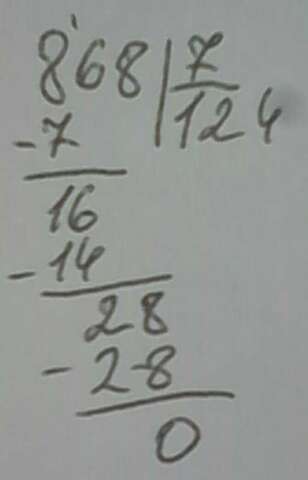 868 | 7
-7 124
16
-14
28
-28
0